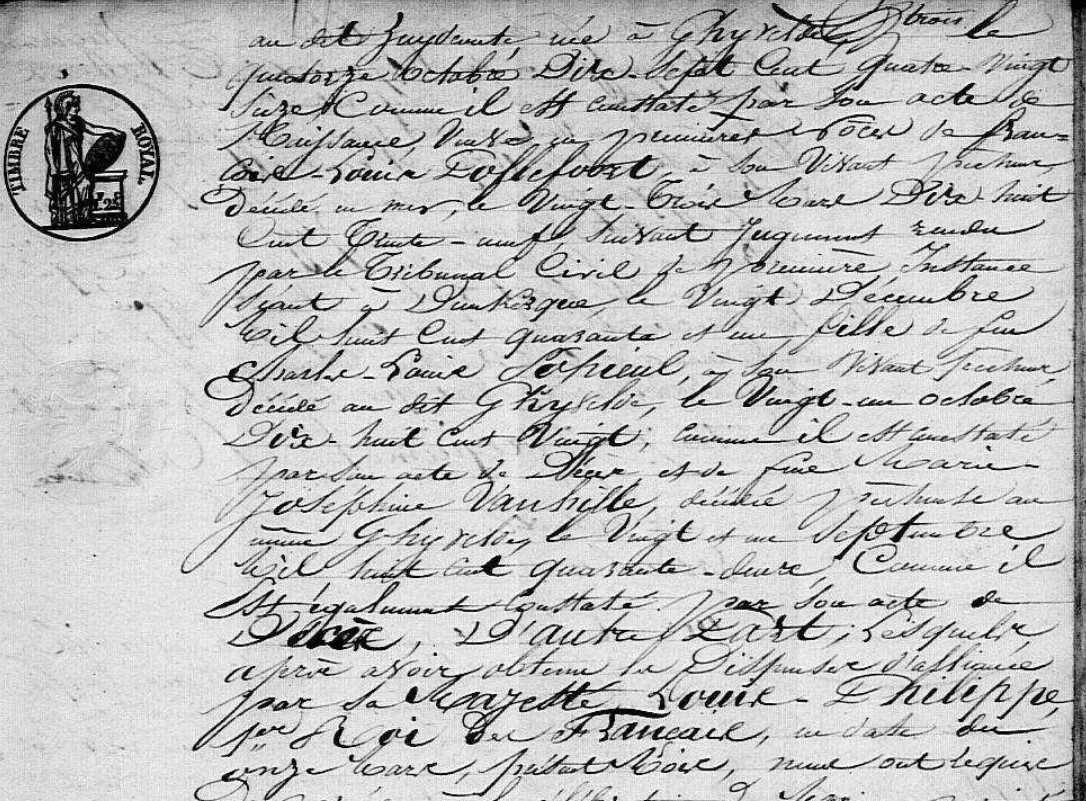 TIMBRE ROYAL
au dit Zuydcoote, née à Ghyvelde, trois le
quatorze octobre Dix-Sept Cent Quatre-Vingt
Seize, Comme il est constaté par son acte de
Naissance, Veuve en premières nôces de Fran-
çois-Louis, à son Vivant pêcheur,
décédé en mer, le Vingt-Trois Mars Dix-huit
Cent Trente-neuf, suivant Jugement rendu
par le Tribunal Civil de première Instance
séant à Dunkerque, le Vingt Décembre
Mil huit Cent quarante et un, fille de feu
Charles-Louis, à son Vivant pêcheur,
Décédé au dit Ghyvelde, le Vingt-un octobre
Dix-huit Cent Vingt, comme il est constaté
par son acte de Décès et de feue Marie-
Joséphine Vanhille, décédée pêcheuse au
même Ghyvelde, le Vingt et un Septembre
Mil huit Cent quarante-deux, Comme il
Est également Constaté par son acte de
Décès, D'autre Part; Lesquels,
après avoir obtenu les Dispenses d'alliance
par Sa Majesté Louis-Philippe,
1er Roi des Français, en date du
onze Mars, présent Mois, nous ont requis